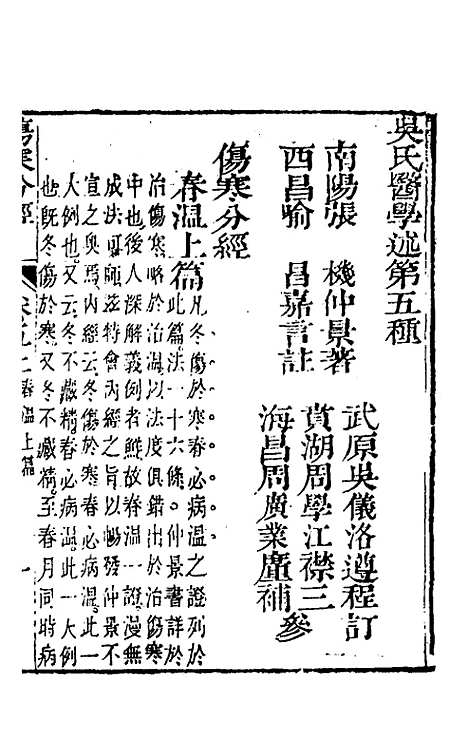 吳氏醫學述第五種
南陽張 機仲景著
西昌喻 昌嘉言註
武原吳儀洛遵程訂
黃湖周學江襟三
海昌周廣業廑補 參
傷寒分經
春溫上篇 凡冬傷於寒春必病溫之證列於
此篇法一十六條○仲景書詳於
治傷寒略於治溫以法度俱錯出於治傷寒
中也後人深解義例者鮮故春溫一證漫無
成法可師茲特會內經之旨以暢發仲景不
宣之奧焉內經云冬傷於寒春必病溫此一
大例也又云冬不藏精春必病溫此一大例
也既冬傷於寒又冬不藏精至春月同時病
傷寒分經
春溫上篇
一